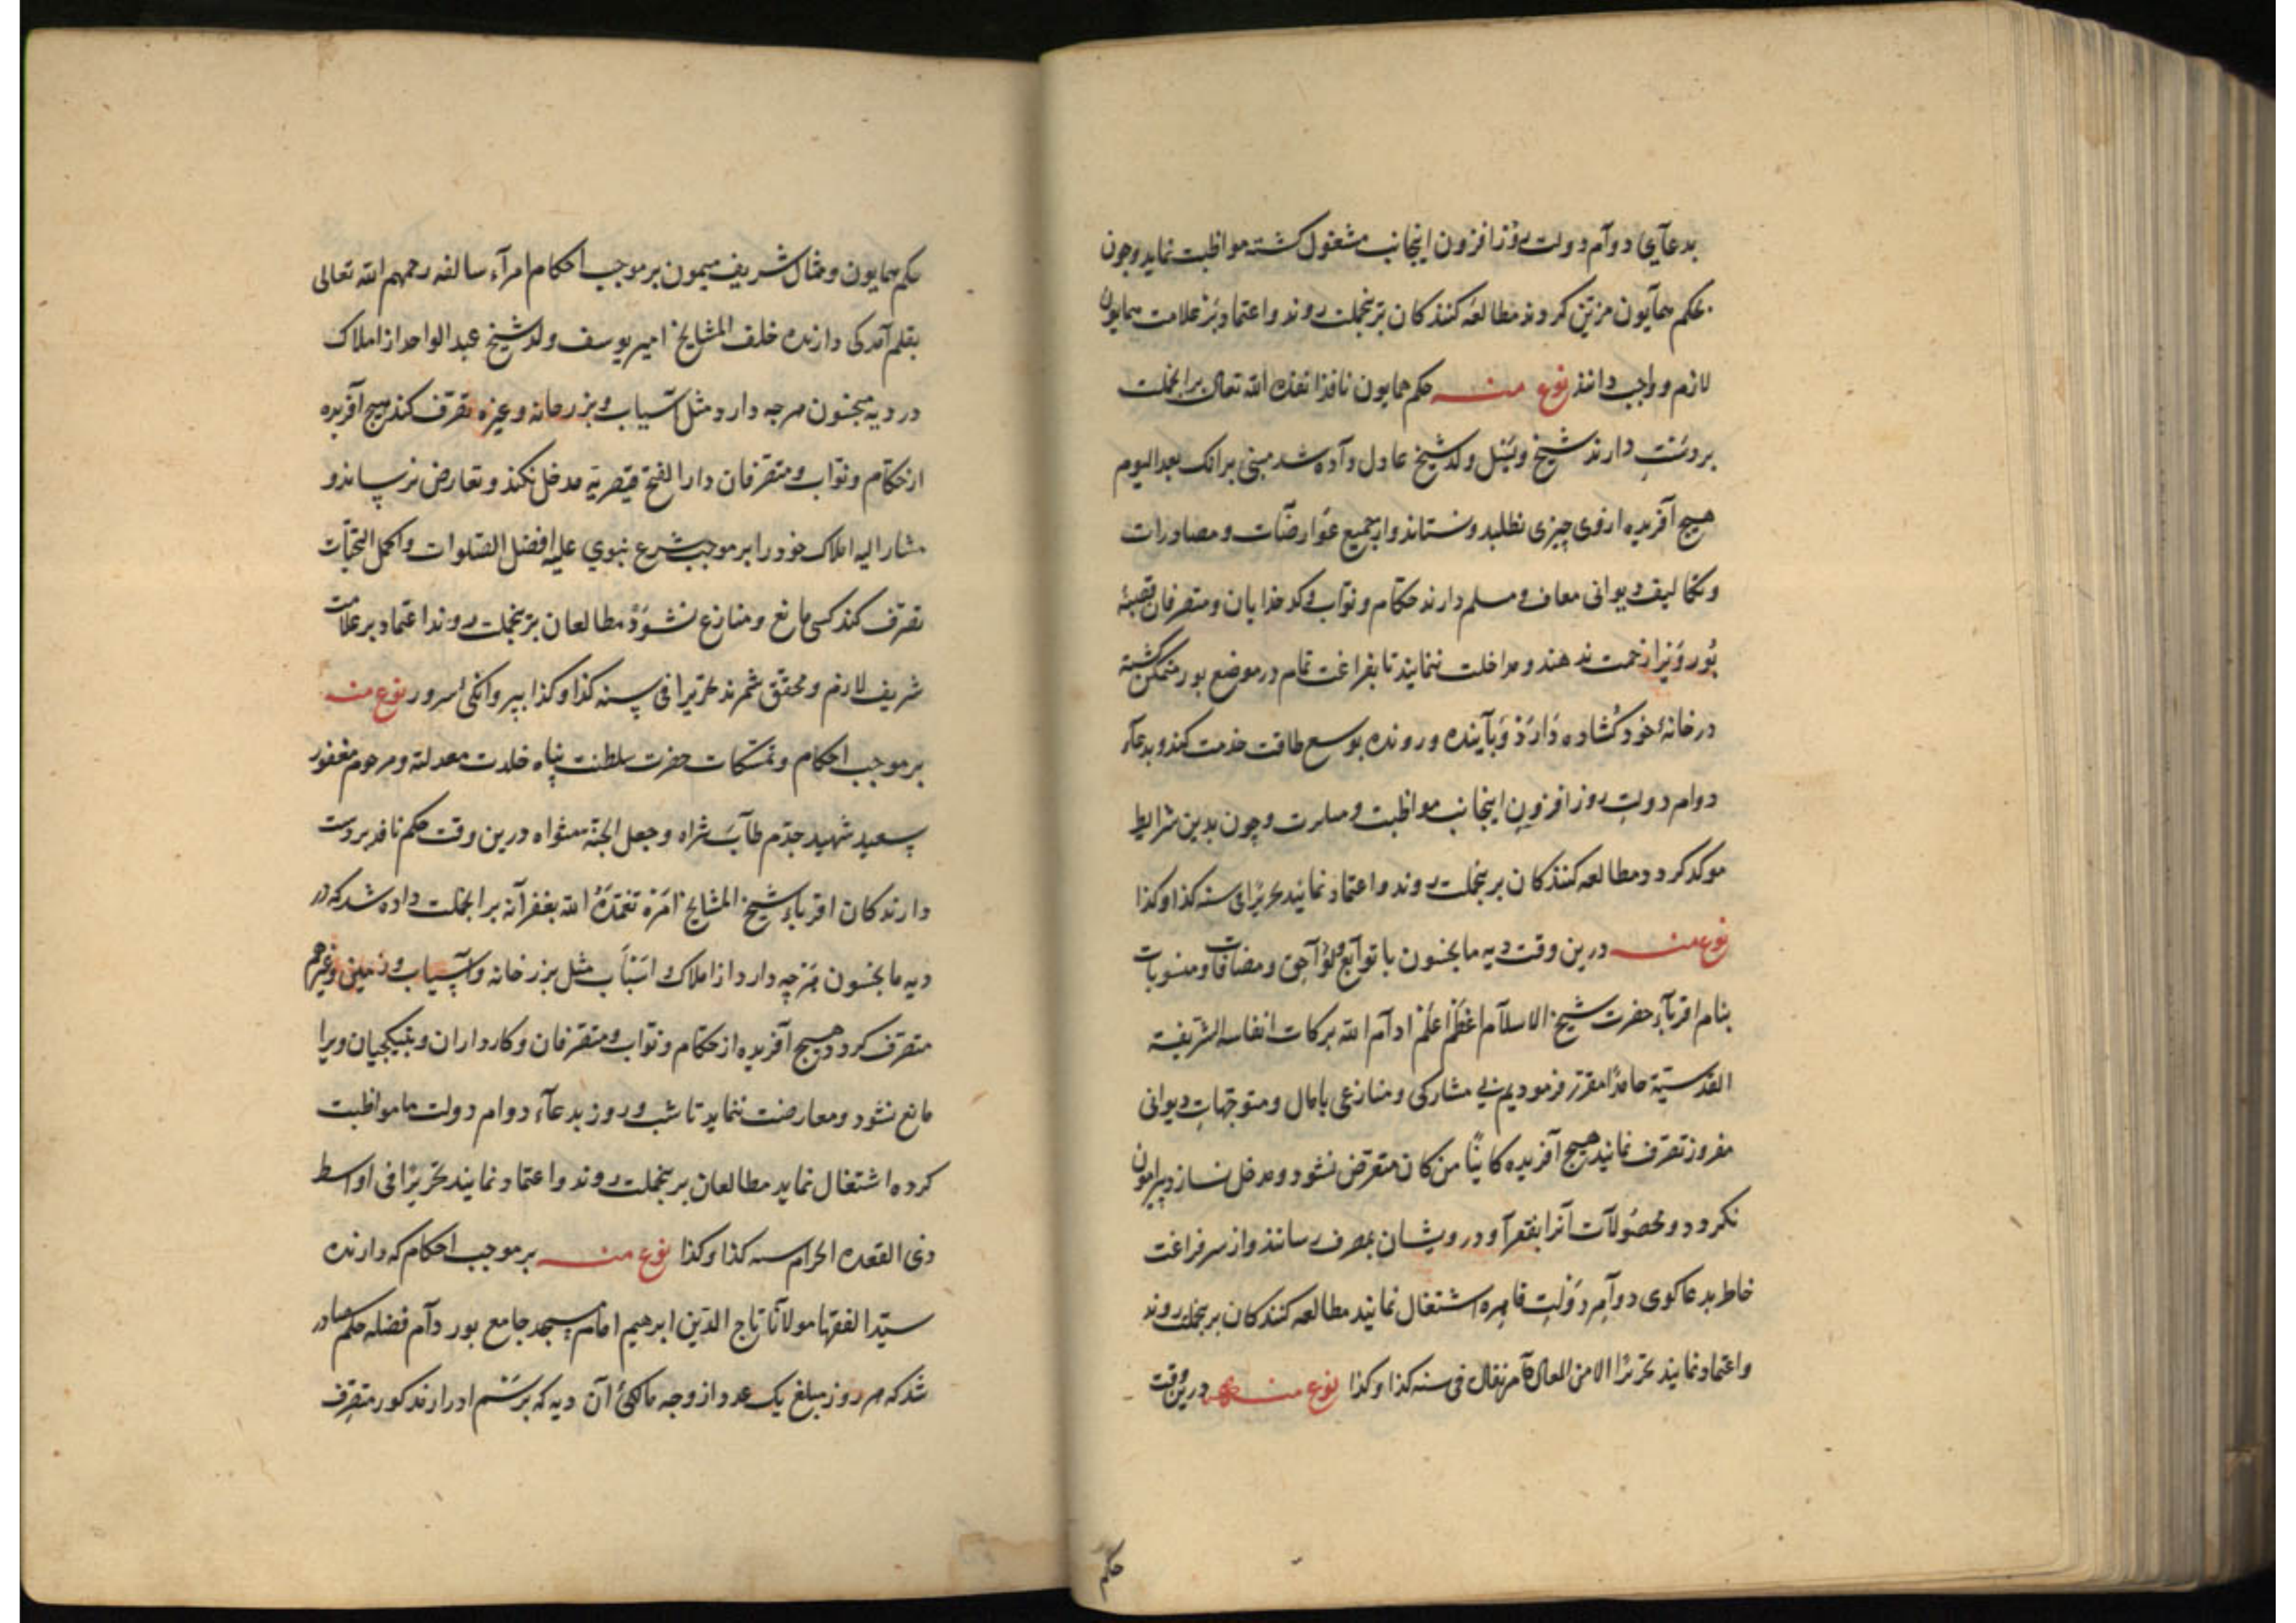 بدعآی دوآم دولت روز افزون اینجانب مشغول کشته مواظبت نماید وچون
بحکم همآیون مزیّن کردد مطالعه کنندکان برینجملت روند واعتماد بر علامت همایون
لازم و واجب دانند نوع منه حکم همایون نافذ انفذه الله تعالی برابجملت
بردست دارنده شیخ ولد شیخ عادل داده شد مبنی برانک بعد الیوم
هیچ آفریده ازوی چیزی نطلبد ونستاند واز جمیع عوارضات ومصادرات
وتکالیف دیوانی معاف ومسلم دارند حکّام ونوّاب وکدخدایان ومتصرفان قصبهٔ
بور ویرا زحمت ندهند ومداخلت ننمایند تا بفراغت تمام در موضع بور متمکن کشته
در خانهٔ خود کشاده دارد وبآینده ورونده بوسع طاقت خدمت کند وبدعآء
دوام دولت روز افزون اینجانب مواظبت وچون بدین شرایط
موکد کردد ومطالعه کنندکان برینجملت روند واعتماد نمایند تحریرا فی سنه کذا وکذا
نوع منه درین وقت دیه مابجنسون با توآبع ولوآحق ومضافات ومنسوبات
بنام اقربآء حضرت شیخ الاسلام اعظم اعلم ادآم الله برکات انفاسه الشریفة
القدسیّة مقرّر فرمودیم بی مشارکی ومنازعی بامال ومتوجّهات دیوانی
مفروز تصرف نمایند هیچ آفریده کاینًا من کان متعرّض نشود ومدخل نسازد وپیرامون
نکردد ومحصولآت آنرا بفقرآ ودرویشان بمصرف رسانند واز سر فراغت
خاطر بدعاکوی دوآم دولت قاهره اشتغال نمایند مطالعه کنندکان برینجملت روند
واعتماد نمایند تحریرًا بالامر العالی فی سنه کذا وکذا نوع منه درین وقت
حکم
حکم همایون ومثال شریف میمون بر موجب احکام امرآء سالفه رحمهم الله تعالی
بقلم آمد کی دارنده خلف المشایخ امیر یوسف ولد شیخ عبد الواحد از املاک
در دیه مبجنسون هرجه دارد مثل آسیاب وبزرخانه وغیره تصرف کند هیچ آفریده
از حکّام ونوّاب ومتصرّفان دار الفتح قیصریّه مدخل نکند وتعارض نرساند و
مشار الیه املاک خود را بر موجب شرع نبوی علیه افضل الصلوات واکمل التحیّات
تصرّف کند کسی مانع ومنازع نشود مطالعان برینجملت روند اعتماد بر علامت
شریف لازم ومحقق شمرند تحریرا فی سنه کذا وکذا ببروانکیٔ سرور نوع منه
بر موجب احکام وتمسّکات حضرت سلطنت پناه خلدت معدلته ومرحوم مغفور
سعید شهید جدّم طآب ثراه وجعل الجنّة مثواه درین وقت حکم نافذ بر دست
دارندکان اقربآء شیخ المشایخ امره تغمّده الله بغفرآنه برابجملت داده شد که در
دیه مابجنسون هرچه دارد از املاک واسباب مثل بزرخانه وآسیاب وزمین وغیرهم
متصرّف کردد هیچ آفریده از حکّام ونوّاب ومتصرّفان وکارداران وبتیکجیان ویرا
مانع نشود ومعارضت ننماید تا شب وروز بدعآء دوام دولت ما مواظبت
کرده اشتغال نماید مطالعان برینجملت روند واعتماد نمایند تحریرًا فی اواسط
ذی القعده الحرام سنه کذا وکذا نوع منه بر موجب احکام که دارنده
سیّد الفقها مولآنا تاج الدّین ابرهیم امام مسجد جامع بور دآم فضله حکم صادر
شد که هر روز مبلغ یک عدد از وجه مالکیٔ آن دیه که برسم ادرار مذکور متصرّف